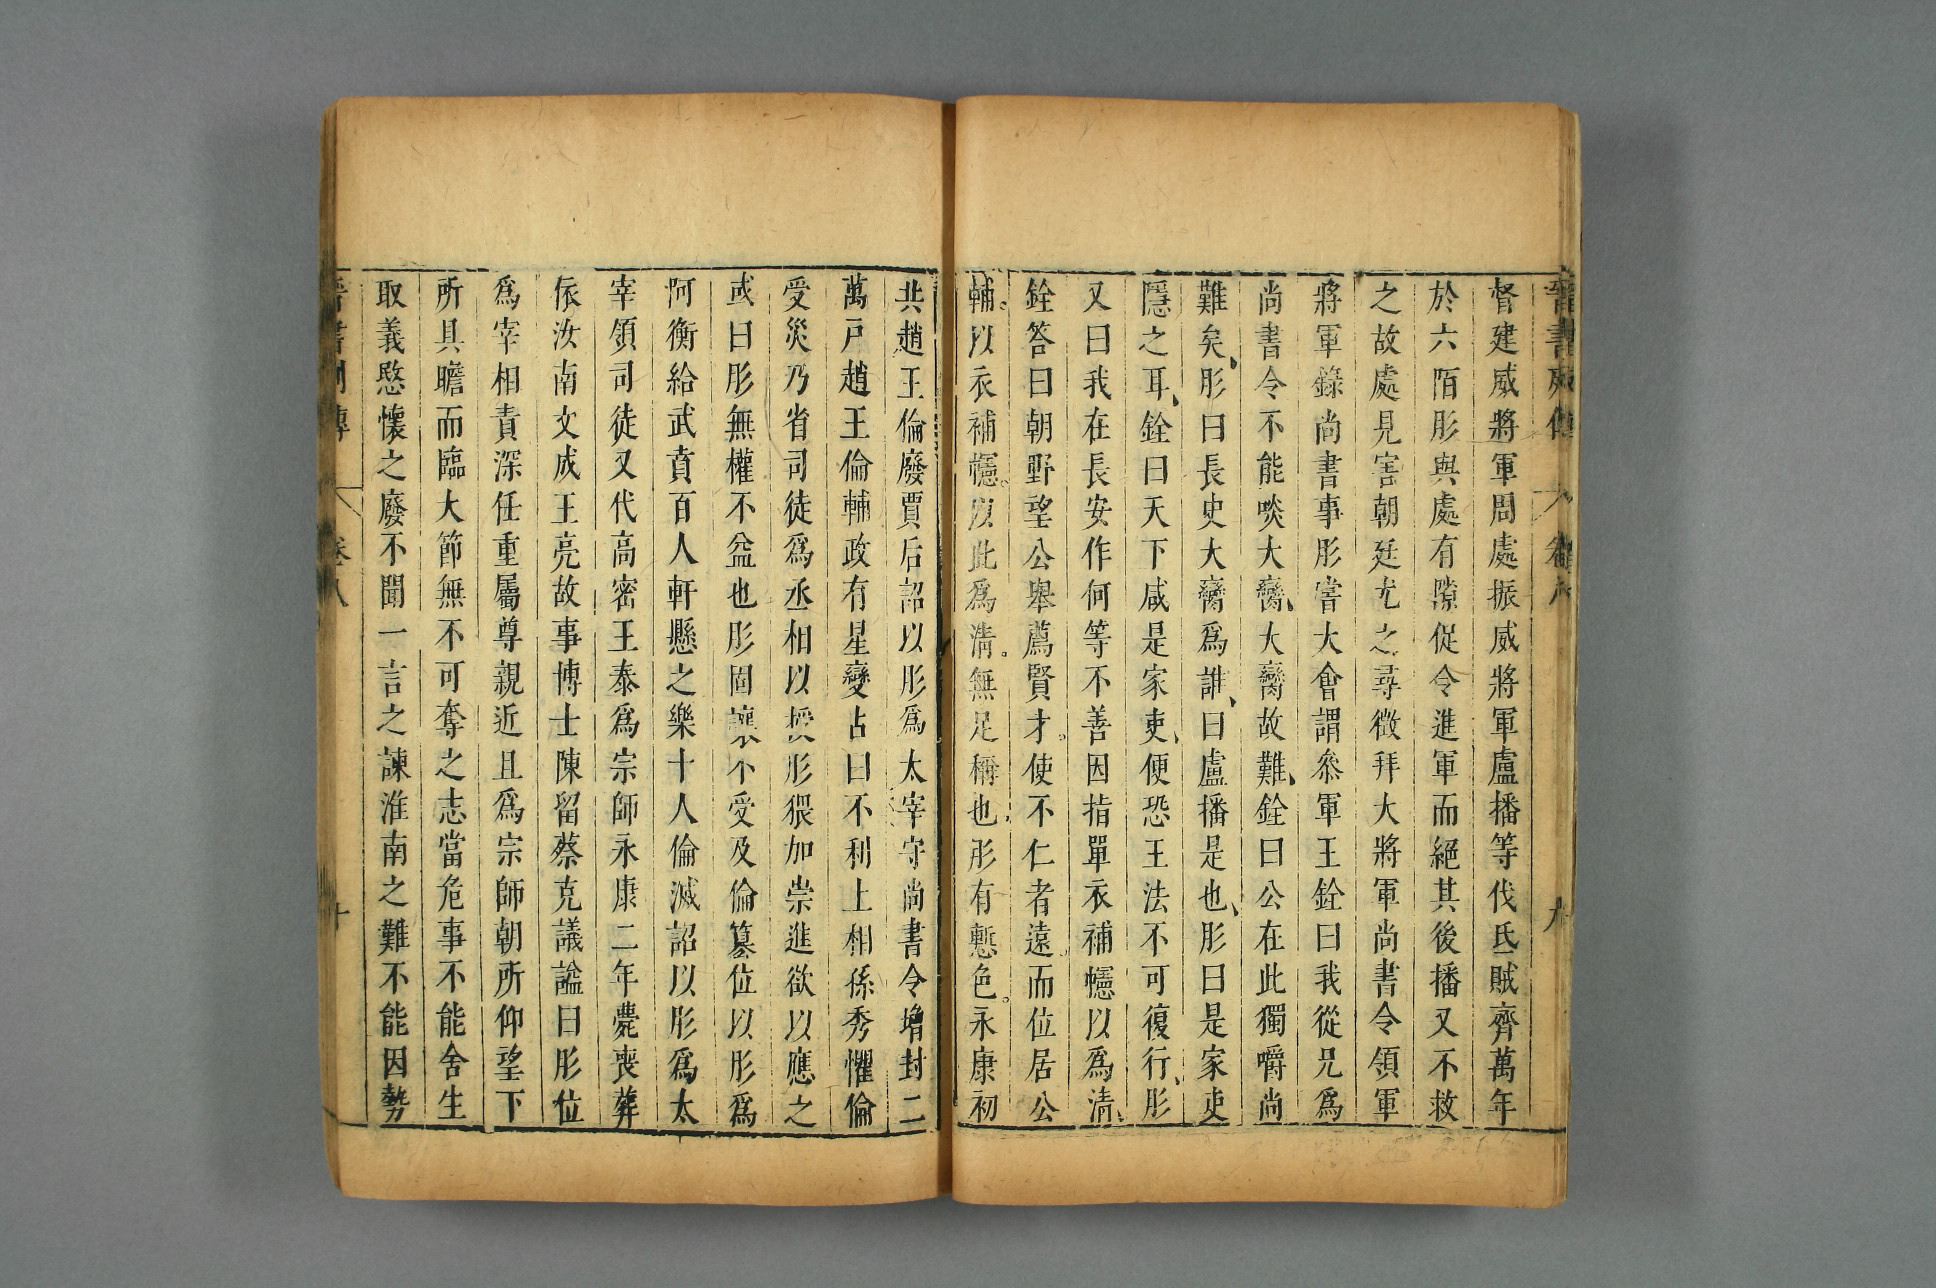 晉書列傳 卷八 九
督建威將軍周處振威將軍盧播等伐氐賊齊萬年
於六陌肜與處有隙促令進軍而絕其後播又不救
之故處見害朝廷尤之尋徵拜大將軍尚書令領軍
將軍錄尚書事肜嘗大會謂叅軍王銓曰我從兄爲
尚書令不能啖大臠大臠故難銓曰公在此獨嚼尚
難矣肜曰長史大臠爲誰曰盧播是也肜曰是家吏
隱之耳銓曰天下咸是家吏便恐王法不可復行肜
又曰我在長安作何等不善因指單衣補幰以爲清
銓答曰朝野望公舉薦賢才使不仁者遠而位居公
輔以衣補幰以此爲清無足稱也肜有慙色永康初
共趙王倫廢賈后詔以肜爲太宰守尚書令增封二
萬戸趙王倫輔政有星變占曰不利上相孫秀懼倫
受災乃省司徒爲丞相以授肜猥加崇進欲以應之
或曰肜無權不益也肜固讓不受及倫簒位以肜爲
阿衡給武賁百人軒懸之樂十人倫滅詔以肜爲太
宰領司徒又代高密王泰爲宗師永康二年薨喪葬
依汝南文成王亮故事博士陳留蔡克議諡曰肜位
爲宰相責深任重屬尊親近且爲宗師朝所仰望下
所具瞻而臨大節無不可奪之志當危事不能舍生
取義愍懷之廢不聞一言之諫淮南之難不能因勢
晉書列傳 卷八 十